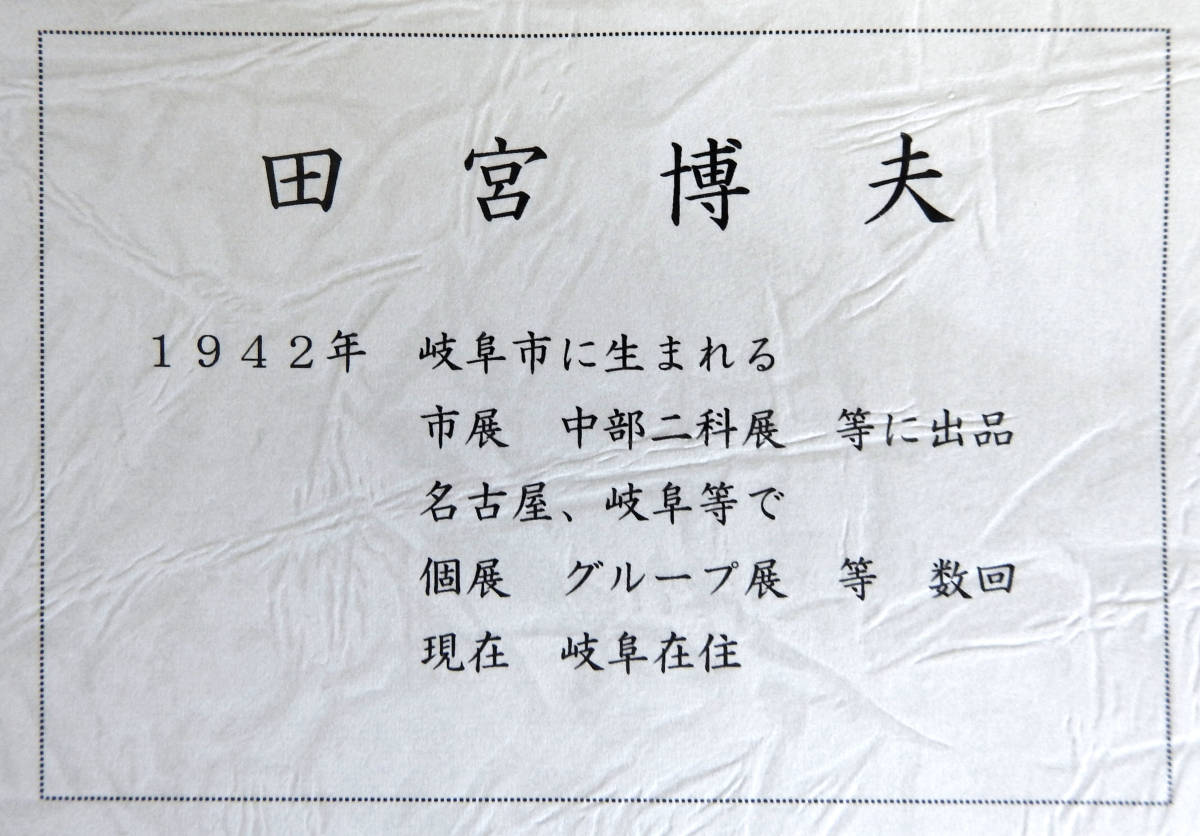 田宮博夫
１９４２年　岐阜市に生まれる
市展　中部二科展　等に出品
名古屋、岐阜等で
個展　グループ展　等　数回
現在　岐阜在住